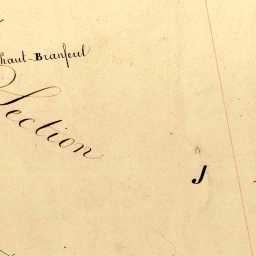 haut-Branfeul
Section
J